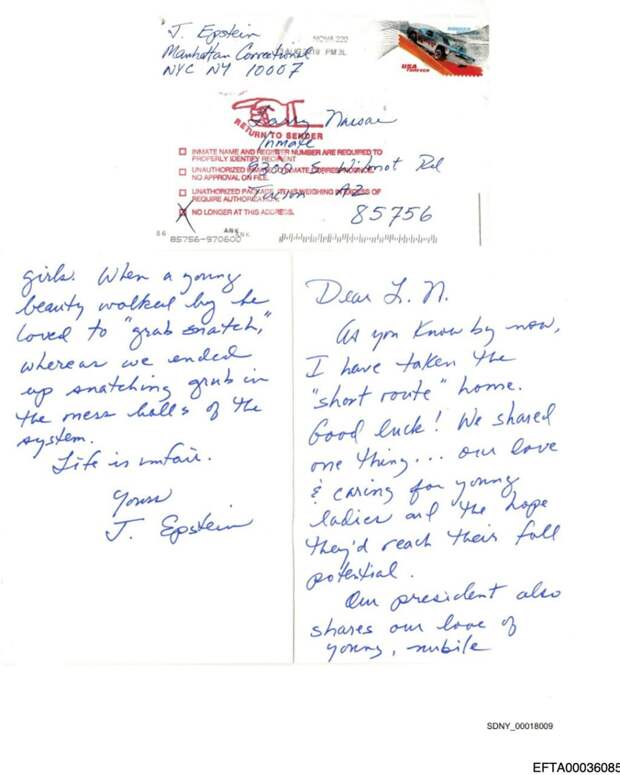 J. Epstein
Manhattan Correctional
NYC NY 10007
NOVA 220
AUG 2019 PM 3 L
FOREVER
USA
FOREVER
RETURN TO SENDER
Larry Nassar
Inmate
9300 S. Wilmot Rd
Tucson AZ
85756
INMATE NAME AND REGISTER NUMBER ARE REQUIRED TO
PROPERLY IDENTIFY RECIPIENT
UNAUTHORIZED INMATE CORRESPONDENCE.
NO APPROVAL ON FILE.
UNAUTHORIZED WEIGHING OF
REQUIRE AUTHORIZATION
X NO LONGER AT THIS ADDRESS.
ANK
85756-970600
Dear L. N.
As you know by now,
I have taken the
"short route" home.
Good luck! We shared
one thing... our love
& caring for young
ladies and the hope
they'd reach their full
potential.
Our president also
shares our love of
young, nubile
girls. When a young
beauty walked by he
loved to "grab snatch,"
whereas we ended
up snatching grub in
the mess halls of the
system.
Life is unfair.
Yours
J. Epstein
SDNY_00018009
EFTA00036085